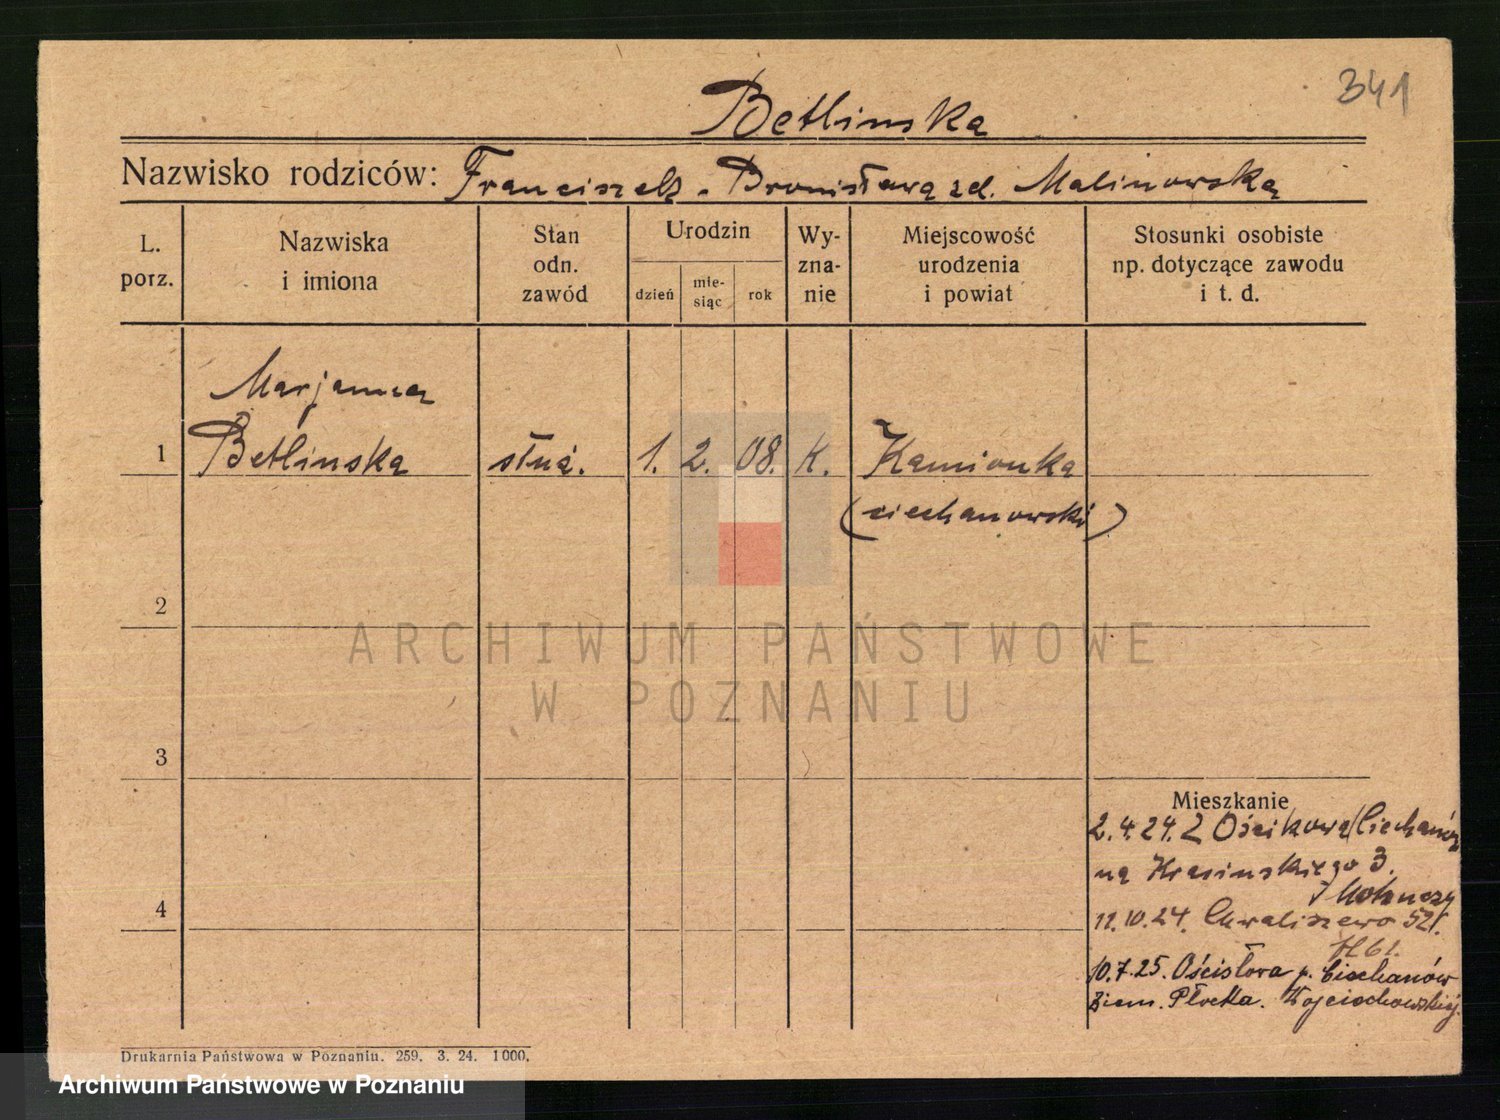 341
Betlinska
Nazwisko rodziców: Franciszek - Bronisława zd. Malinowska
L. porz.
Nazwiska i imiona
Stan odn. zawód
Urodzin
dzień
mie-siąc
rok
Wy-zna-nie
Miejscowość urodzenia i powiat
Stosunki osobiste np. dotyczące zawodu i t. d.
Marjanna
1 Betlinska służ. 1. 2. 08. K. Kamionka
(ciechanowski)
2
3
4
Mieszkanie
2.4.24. Z (Ciechanów
na Krasinskiego 3.
11.10.24. Chwaliszewo 52
10.7.25. Ościsłowa p. Ciechanów
Ziem. Płocka.
Drukarnia Państwowa w Poznaniu. 259. 3. 24. 1000.
ARCHIWUM PAŃSTWOWE
W POZNANIU
Archiwum Państwowe w Poznaniu